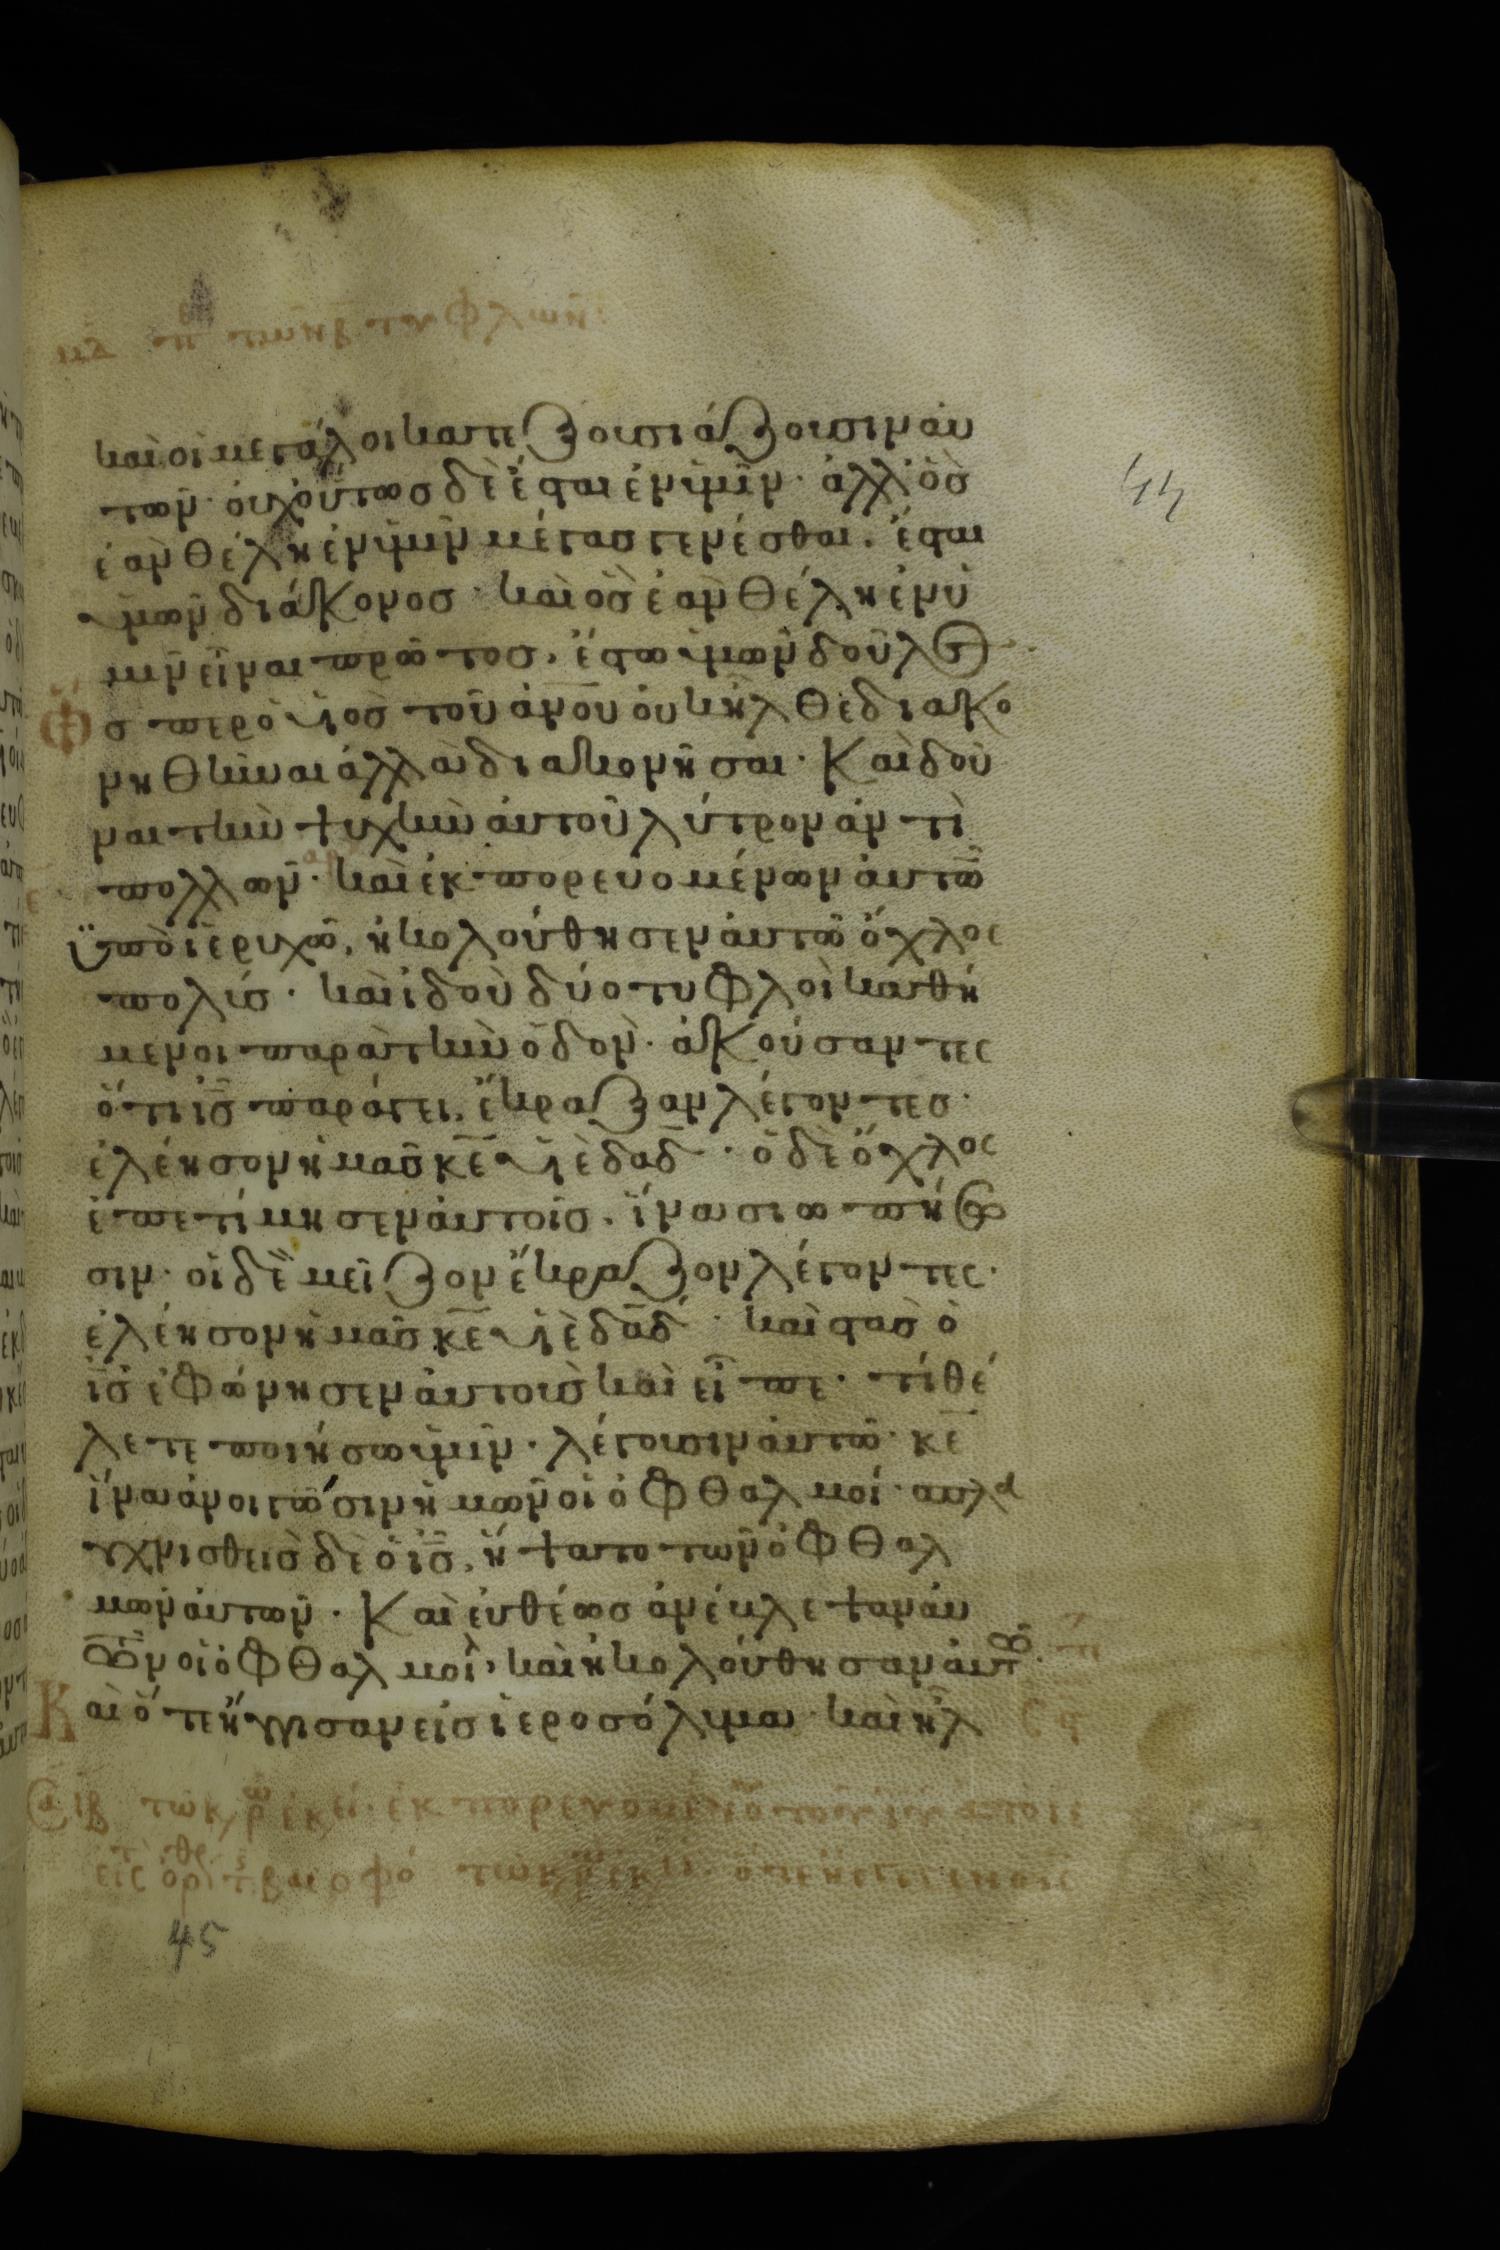 καὶ οἱ μεγάλοι κατεξουσιάζουσιν αὐ
τῶν· οὐχ οὕτως δὲ ἔσται ἐν ὑμῖν· ἀλλ' ὃς
ἐὰν θέλη ἐν ὑμῖν μέγας γενέσθαι, ἔσται
ὑμῶν διάκονος· καὶ ὃς ἐὰν θέλη ἐν ὑ
μῖν εἶναι πρῶτος, ἔστω ὑμῶν δοῦλος·
ὥσπερ ὁ υἱὸς τοῦ ἀνου οὐκ ἦλθε διακο
νηθῆναι ἀλλὰ διακονῆσαι· Καὶ δοὺ
ναι τὴν ψυχὴν αὐτοῦ λύτρον ἀντὶ
πολλῶν· καὶ ἐκπορευομένων αὐτῶ
ϋπὸ ἰεριχῶ, ἠκολούθησεν αὐτῶ ὄχλος
πολύς· καὶ ἰδοὺ δύο τυφλοὶ καθή
μενοι παρὰ τὴν ὁδόν· ἀκούσαντες
ὅτι ις παράγει, ἔκραζαν λέγοντες·
ἐλέησον ἡμᾶς κε υἱὲ δαδ· ὁ δὲ ὄχλος
ἐπετίμησεν αὐτοῖς, ἵνα σιωπήσω
σιν· οἱ δὲ μεῖζον ἔκραζον λέγοντες·
ἐλέησον ἡμᾶς κε υἱὲ δαδ· καὶ στὰς ὁ
ις ἐφώνησεν αὐτοὺς καὶ εἶπε· τί θέ
λετε ποιήσω ὑμῖν· λέγουσιν αὐτῶ· κε
ἵνα ἀνοιγῶσιν ἡμῶν οἱ ὀφθαλμοί· σπλα
γχνισθεὶς δὲ ὁ ις, ἥψατο τῶν ὀφθαλ
μῶν αὐτῶν· Καὶ εὐθέως ἀνέβλεψαν αὐ
τῶν οἱ ὀφθαλμοὶ, καὶ ἠκολούθησαν αὐτῶ·
Καὶ ὅτε ἤγγισαν εἰς ἱεροσόλυμα καὶ ἦλ
44
45